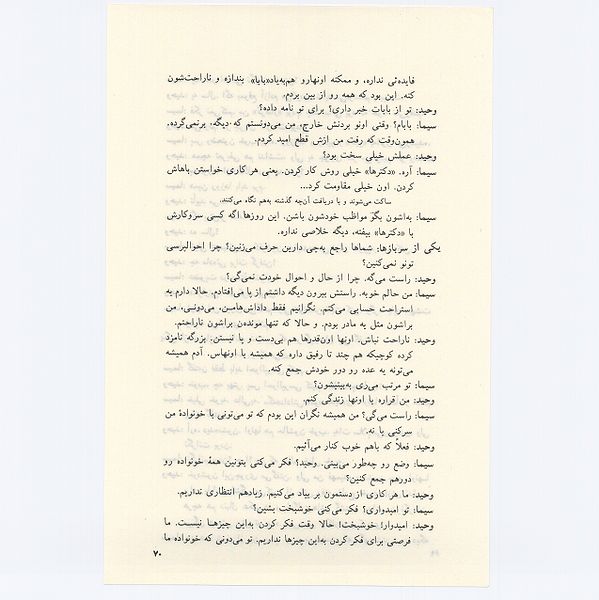 فایده‌ئی نداره، و ممکنه اونهارو هم‌به‌یاد«بابا» بندازه و ناراحت‌شون
کنه. این بود که همه رو از بین بردم.
وحید: تو از بابات خبر داری؟ برای تو نامه داده؟
سیما: بابام؟ وقتی اونو بردنش خارج، من می‌دونستم که دیگه، برنمی‌گرده.
همون‌وقت که رفت من ازش قطع امید کردم.
وحید: عملش خیلی سخت بود؟
سیما: آره. «دکترها» خیلی روش کار کردن. یعنی هر کاری خواستن باهاش
کردن. اون خیلی مقاومت کرد...
ساکت می‌شوند و با دریافت آن‌چه گذشته به‌هم نگاه می‌کنند.
سیما: به‌اشون بگو مواظب خودشون باشن. این روزها اگه کسی سروکارش
با «دکترها» بیفته، دیگه خلاصی نداره.
یکی از سربازها: شماها راجع به‌چی دارین حرف می‌زنین؟ چرا احوالپرسی
تونو نمی‌کنین؟
وحید: راست می‌گه. چرا از حال و احوال خودت نمی‌گی؟
سیما: من حالم خوبه. راستش بیرون دیگه داشتم از پا می‌افتادم. حالا دارم یه
استراحت حسابی می‌کنم. نگرانیم فقط داداش‌هامـن، می‌دونـی، من
براشون مثل یه مادر بودم. و حالا که تنها موندەن براشون ناراحتم.
وحید: ناراحت نباش. اونها اون‌قدرها هم بی‌دست و پا نیستن. بزرگه نامزد
کرده کوچیکه هم چند تا رفیق داره که همیشه با اونهاس. آدم همیشه
می‌تونه یه عده رو دور خودش جمع کنه.
سیما: تو مرتب می‌ری به‌بینیشون؟
وحید: من قراره با اونها زندگی کنم.
سیما: راست می‌گی؟ من همیشه نگران این بودم که تو می‌تونی با خونوادۀ من
سرکنی یا نه.
وحید: فعلاً که باهم خوب کنار می‌آئیم.
سیما: وضع رو چه‌طور می‌بینی. وحید؟ فکر می‌کنی بتونین همۀ خونواده رو
دورهم جمع کنین؟
وحید: ما هر کاری از دستمون بر بیاد می‌کنیم. زیادهم انتظاری نداریم.
سیما: تو امیدواری؟ فکر می‌کنی خوشبخت بشین؟
وحید: امیدوار! خوشبخت! حالا وقت فکر کردن به‌این چیزهـا نیسـت. ما
فرصتی برای فکر کردن به‌این چیزها نداریم. تو می‌دونی که خونواده ما
۷۰